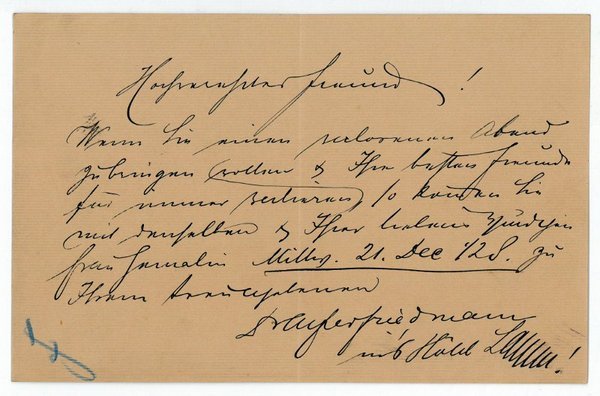 Hochverehrter Freund!
Wenn Sie einen verlorenen Abend
zubringen wollen & Ihre besten Freunde
für immer verlieren, so können Sie
mit denselben & Ihrer liebens
Frau Gemalin Mittw. 21. Dec. zu
Ihrem treuergebenen
friedmann
ins Hôtel Lamm!